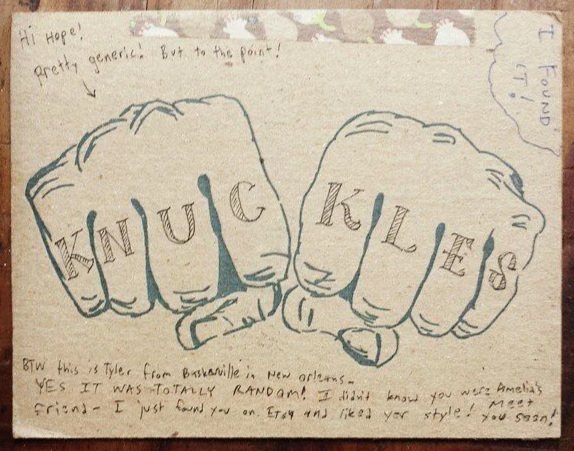 Hi Hope!
Pretty generic! But to the point!
I FOUND
IT!
KNUC KLES
BTW this is Tyler from Baskerville in New Orleans-
YES IT WAS TOTALLY RANDOM! I didn't know you were Amelia's
friend- I just found you on Etsy and liked yer style! MEET
you soon!